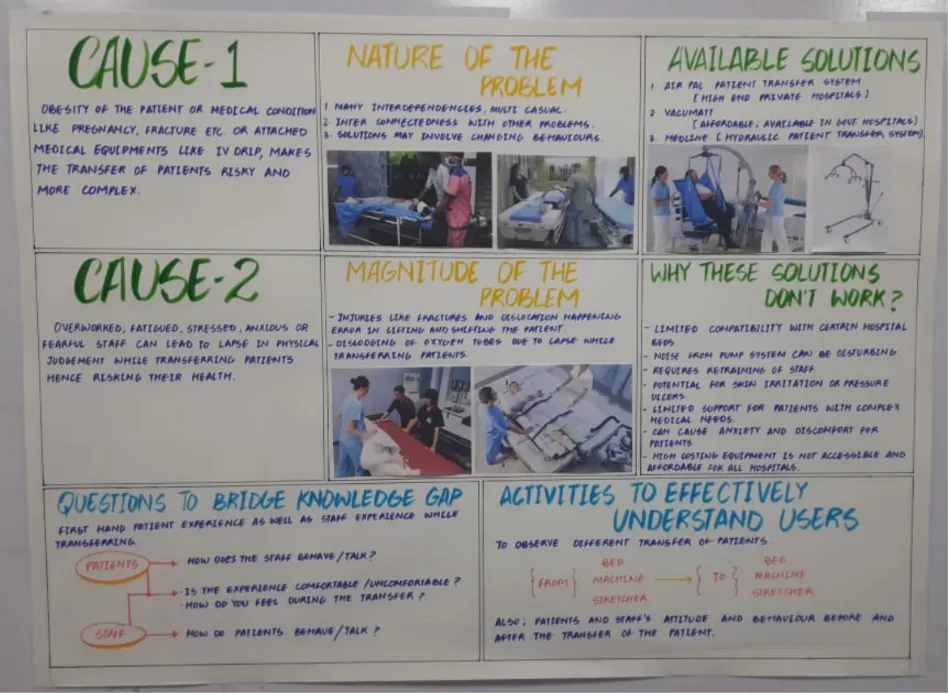 CAUSE-1
OBESITY OF THE PATIENT OR MEDICAL CONDITION
LIKE PREGNANCY, FRACTURE ETC. OR ATTACHED
MEDICAL EQUIPMENTS LIKE IV DRIP, MAKES
THE TRANSFER OF PATIENTS RISKY AND
MORE COMPLEX.
NATURE OF THE
PROBLEM
1 MANY INTERDEPENDENCIES, MULTI CASUAL.
2. INTER CONNECTEDNESS WITH OTHER PROBLEMS.
3. SOLUTIONS MAY INVOLVE CHANGING BEHAVIOURS.
AVAILABLE SOLUTIONS
1. AIR PAL PATIENT TRANSFER SYSTEM
[HIGH END PRIVATE HOSPITALS]
2 VACUMATT
[AFFORDABLE, AVAILABLE IN GOVT. HOSPITALS]
3. MEDLINE [HYDRAULIC PATIENT TRANSFER SYSTEM].
CAUSE-2
OVERWORKED, FATIGUED, STRESSED, ANXIOUS OR
FEARFUL STAFF CAN LEAD TO LAPSE IN PHYSICAL
JUDGEMENT WHILE TRANSFERRING PATIENTS
HENCE RISKING THEIR HEALTH.
MAGNITUDE OF THE
PROBLEM
- INJURIES LIKE FRACTURES AND DISLOCATION HAPPENING
ERROR IN LIFTING AND SHIFTING THE PATIENT.
- DISLODGING OF OXYGEN TUBES DUE TO LAPSE WHILE
TRANSFERRING PATIENTS.
WHY THESE SOLUTIONS
DON'T WORK?
- LIMITED COMPATIBILITY WITH CERTAIN HOSPITAL
BEDS
- NOISE FROM PUMP SYSTEM CAN BE DISTURBING.
- REQUIRES RETRAINING OF STAFF.
- POTENTIAL FOR SKIN IRRITATION OR PRESSURE
ULCERS.
- LIMITED SUPPORT FOR PATIENTS WITH COMPLEX
MEDICAL NEEDS.
- CAN CAUSE ANXIETY AND DISCOMFORT FOR
PATIENTS.
- HIGH COSTING EQUIPMENT IS NOT ACCESSIBLE AND
AFFORDABLE FOR ALL HOSPITALS.
QUESTIONS TO BRIDGE KNOWLEDGE GAP
FIRST HAND PATIENT EXPERIENCE AS WELL AS STAFF EXPERIENCE WHILE
TRANSFERRING.
PATIENTS
HOW DOES THE STAFF BEHAVE/TALK?
· IS THE EXPERIENCE COMFORTABLE/UNCOMFORTABLE?
· HOW DO YOU FEEL DURING THE TRANSFER?
STAFF
HOW DO PATIENTS BEHAVE/TALK?
ACTIVITIES TO EFFECTIVELY
UNDERSTAND USERS
TO OBSERVE DIFFERENT TRANSFER OF PATIENTS.
{FROM} BED
MACHINE
STRETCHER
{TO} BED
MACHINE
STRETCHER
ALSO; PATIENTS AND STAFF'S ATTITUDE AND BEHAVIOUR BEFORE AND
AFTER THE TRANSFER OF THE PATIENT.